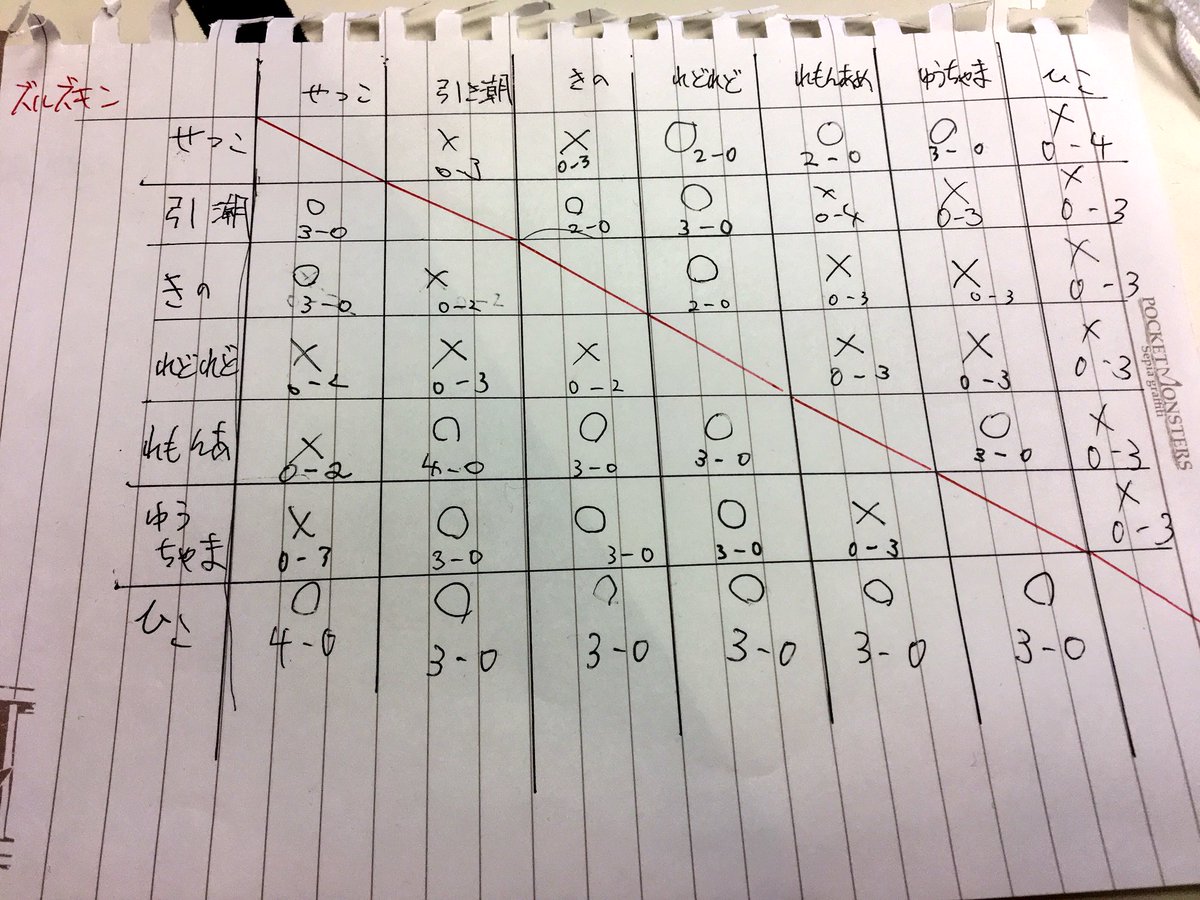 ズルズキン せっこ 引き潮 きの れどれど れもんあめ ゆうちゃま ひこ
せっこ × × ○ ○ ○ ×
0-3 0-3 2-0 2-0 3-0 0-4
引し潮 ○ ○ ○ × × ×
3-0 2-0 3-0 0-4 0-3 0-3
きの ○ × ○ × × ×
3-0 0-2 2-0 0-3 0-3 0-3
れどれど × × × × × ×
0-2 0-3 0-2 0-3 0-3 0-3
れもんあ × ○ ○ ○ ○ ×
0-2 4-0 3-0 3-0 3-0 0-3
ゆう
ちゃま × ○ ○ ○ × ×
0-3 3-0 3-0 3-0 0-3 0-3
ひこ ○ ○ ○ ○ ○ ○
4-0 3-0 3-0 3-0 3-0 3-0
POCKET MONSTERS
Sepia graffiti